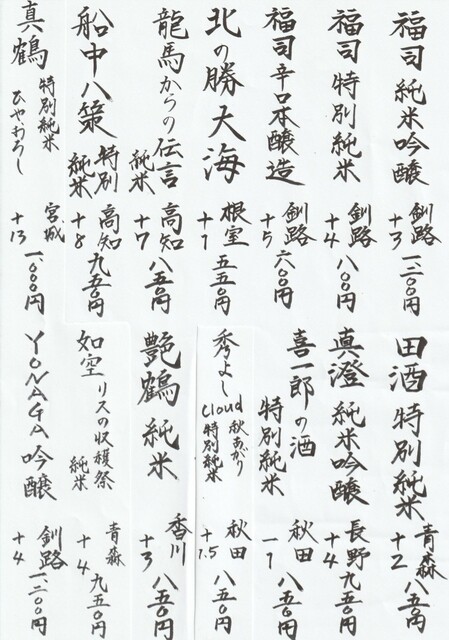 福司 純米吟醸 釧路 +3 一、二〇〇円
福司 特別純米 釧路 +4 八〇〇円
福司 辛口本醸造 釧路 +5 六〇〇円
北の勝 大海 根室 +1 五五〇円
龍馬からの伝言 純米 高知 +7 八五〇円
船中八策 特別純米 高知 +8 九五〇円
真鶴 特別純米 ひやおろし 宮城 +13 一、〇〇〇円
田酒 特別純米 青森 +2 八五〇円
真澄 純米吟醸 長野 +4 九五〇円
喜一郎の酒 特別純米 秋田 -1 八五〇円
秀よし cloud 秋あがり 特別純米 秋田 +1.5 八五〇円
艶鶴 純米 香川 +3 八五〇円
如空 リスの収穫祭 純米 青森 +4 九五〇円
YONAGA 吟醸 釧路 +4 一、二〇〇円